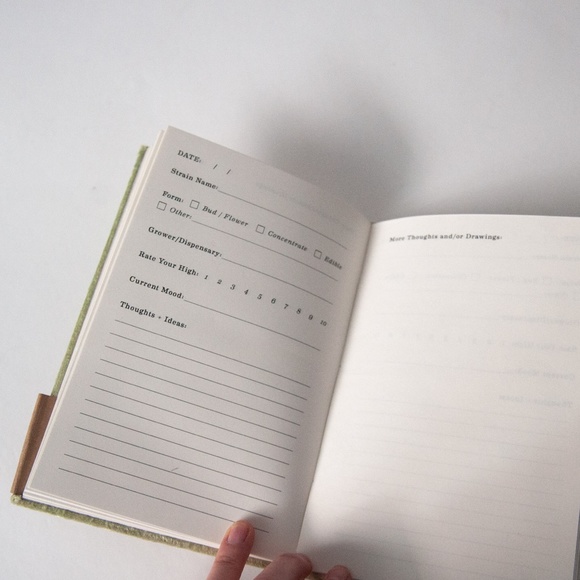 DATE: / /
Strain Name:
Form: Bud / Flower Concentrate Edible
Other:
Grower/Dispensary:
Rate Your High: 1 2 3 4 5 6 7 8 9 10
Current Mood:
Thoughts + Ideas:
More Thoughts and/or Drawings: